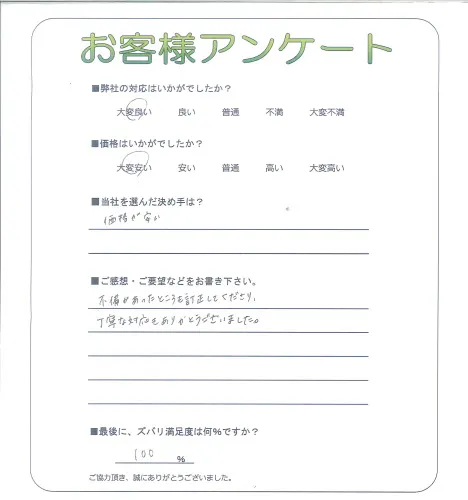 お客様アンケート
■弊社の対応はいかがでしたか？
大変良い 良い 普通 不満 大変不満
■価格はいかがでしたか？
大変安い 安い 普通 高い 大変高い
■当社を選んだ決め手は？
価格が安い
■ご感想・ご要望などをお書き下さい。
不備があったところも訂正してくださり、
丁寧な対応をありがとうございました。
■最後に、ズバリ満足度は何％ですか？
100 ％
ご協力頂き、誠にありがとうございました。